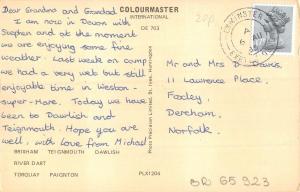 Dear Grandma and Grandad
I am now in Devon with
Stephen and at the moment
we are enjoying some fine
weather. Last week on camp
we had a very wet but still
enjoyable time in Weston-
super-Mare. Today we have
been to Dawlish and
Teignmouth. Hope you are
well, with love from Michael
BRIXHAM TEIGNMOUTH DAWLISH
RIVER DART
TORQUAY PAIGNTON
COLOURMASTER
INTERNATIONAL
DE 703
Photo Precision Limited, St. Ives, Huntingdon
PLX1204
20p
Mr and Mrs D. Davis,
11 Lawrence Place,
Foxley,
Dereham,
Norfolk.
BR 65923